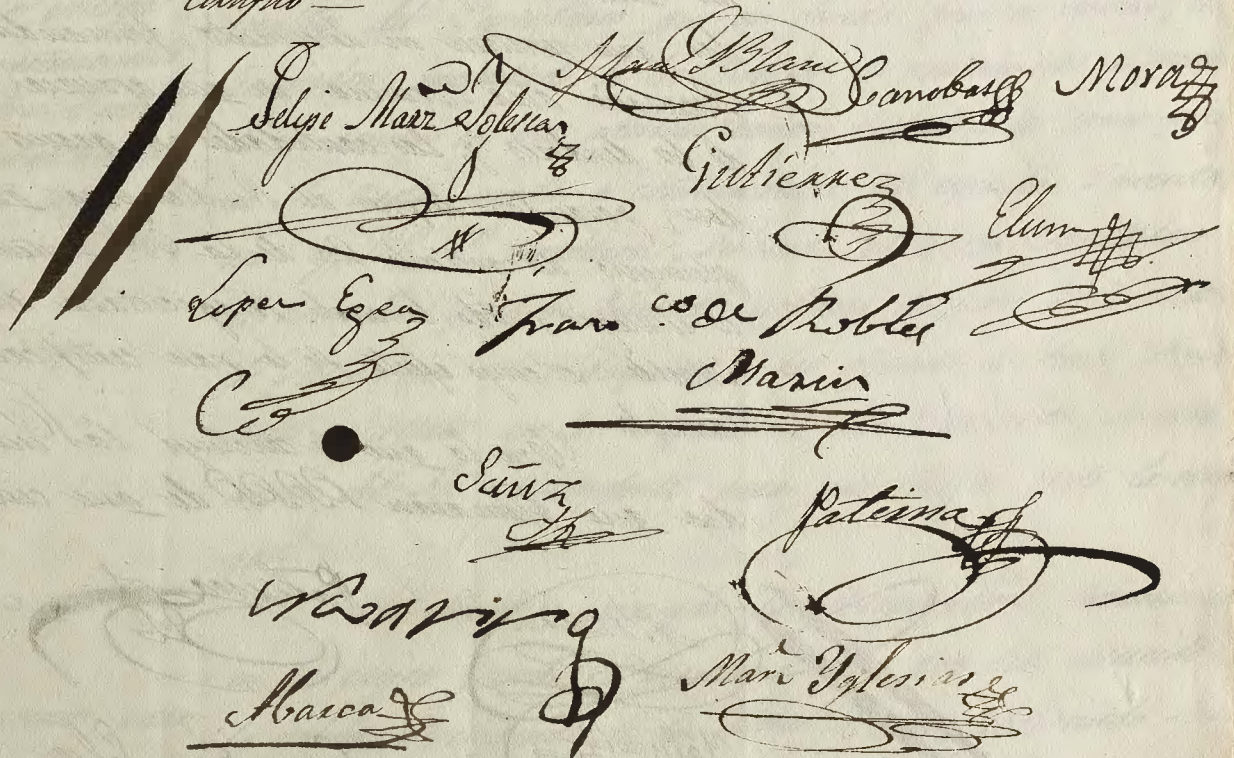 Certifico —
Felipe Marz Yglesias
Blanc
Canobas Mora
Gutierrez
Lopez Egea
Franco de Robles
Marin
Sanz
Paterna
Abarca
Marz Yglesias